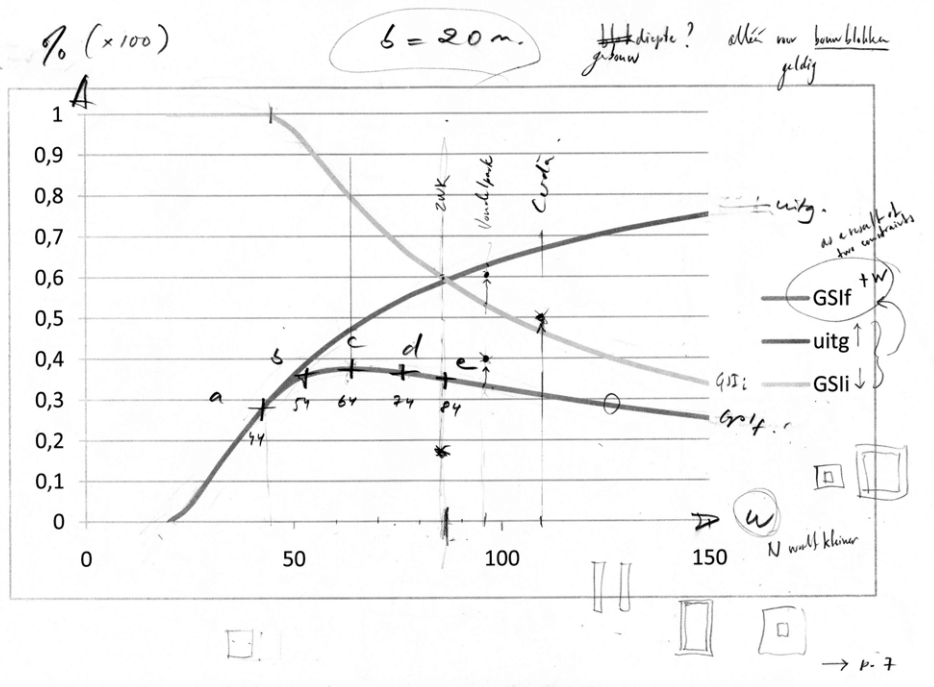 % (×100)
b = 20 m.
diepte?
gebouw
alléén voor bouwblokken
geldig
A
1
0,9
0,8
0,7
0,6
0,5
0,4
0,3
0,2
0,1
0
0
50
100
150
ZWK
Vondelpark
Cerdà
uitg.
as a result of
two constraints
+ W
GSIf
uitg ↑
GSIi ↓
GSIi
GSIf
a
b
c
d
e
44
54
64
74
84
W
N wordt kleiner
→ p. 7